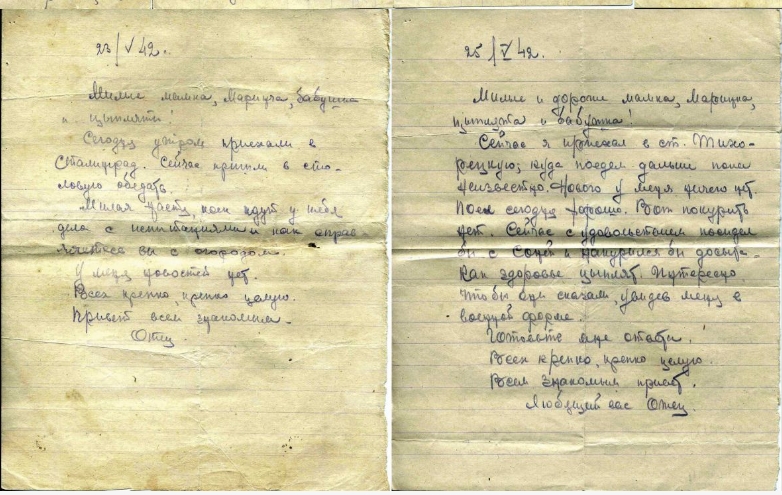 23/V 42.
Милые мамка, Маришка, бабушка
и цыплята!
Сегодня утром приехали в
Сталинград. Сейчас пришли в сто-
ловую обедать.
Милая как идут у тебя
дела с и как справ-
ляетесь вы с огородом.
У меня новостей нет.
Всех крепко, крепко целую.
Привет всем знакомым.
Отец.
25/V 42.
Милые и дорогие мамка, Маришка,
цыплята и бабушка!
Сейчас я приехал в ст. Тихо-
рецкую, куда поедем дальше пока
неизвестно. Нового у меня ничего нет.
Поел сегодня хорошо. Вот покурить
нет. Сейчас с удовольствием посидел
бы с и накурился бы
Как здоровье цыплят. Интересно
что бы они сказали, увидев меня в
военной форме.
Готовьте мне ответы.
Всех крепко, крепко целую.
Всем знакомым привет.
Любящий вас Отец.